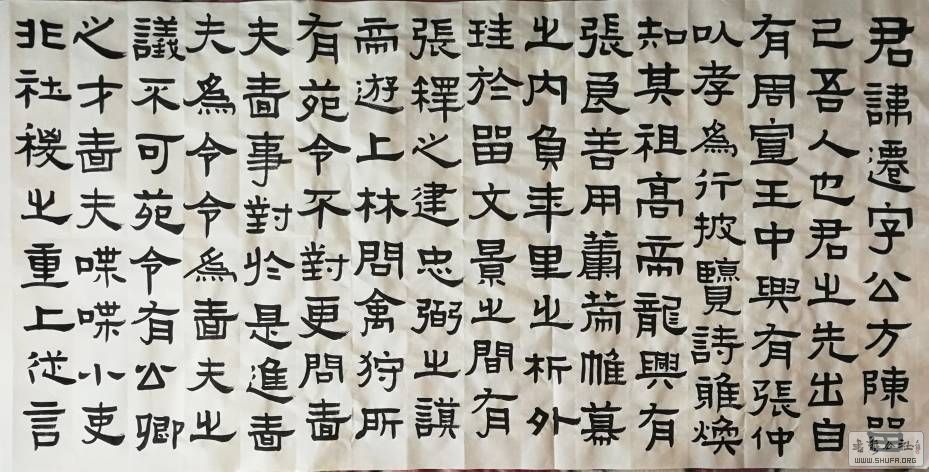 君諱遷字公方陳留
己吾人也君之先出自
有周宣王中興有張仲
以孝為行披覽詩雅煥
知其祖高帝龍興有
張良善用籌策帷幕
之內負年里之析外
珪於留文景之間有
張釋之建忠弼之謨
帝遊上林問禽狩所
有苑令不對更問嗇
夫嗇事對於是進嗇
夫為令令為嗇夫之
議不可苑令有公卿
之才嗇夫喋喋小吏
非社稷之重上從言
書法公社
WWW.SHUFA.ORG